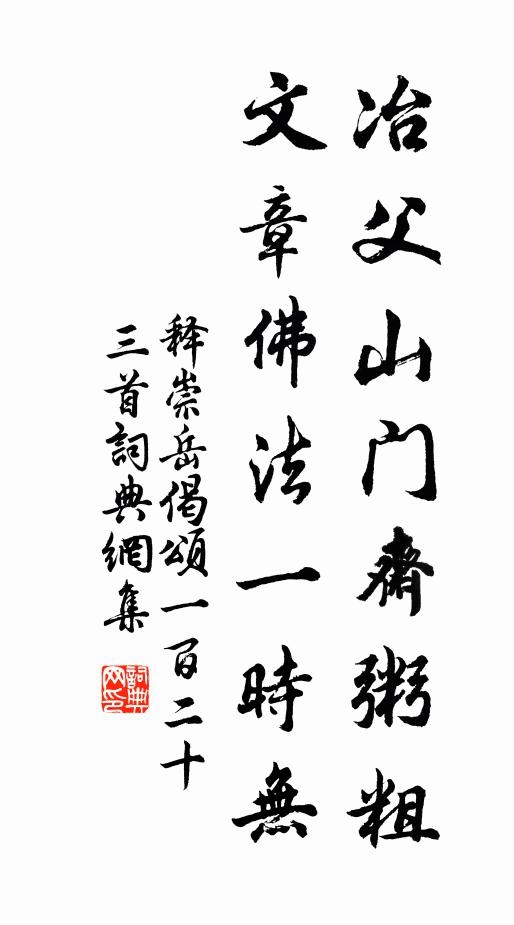 冶父山門齋粥粗
文章佛法一時無
释崇岳偈頌一百二十
三首詞典網集
詞典
网印